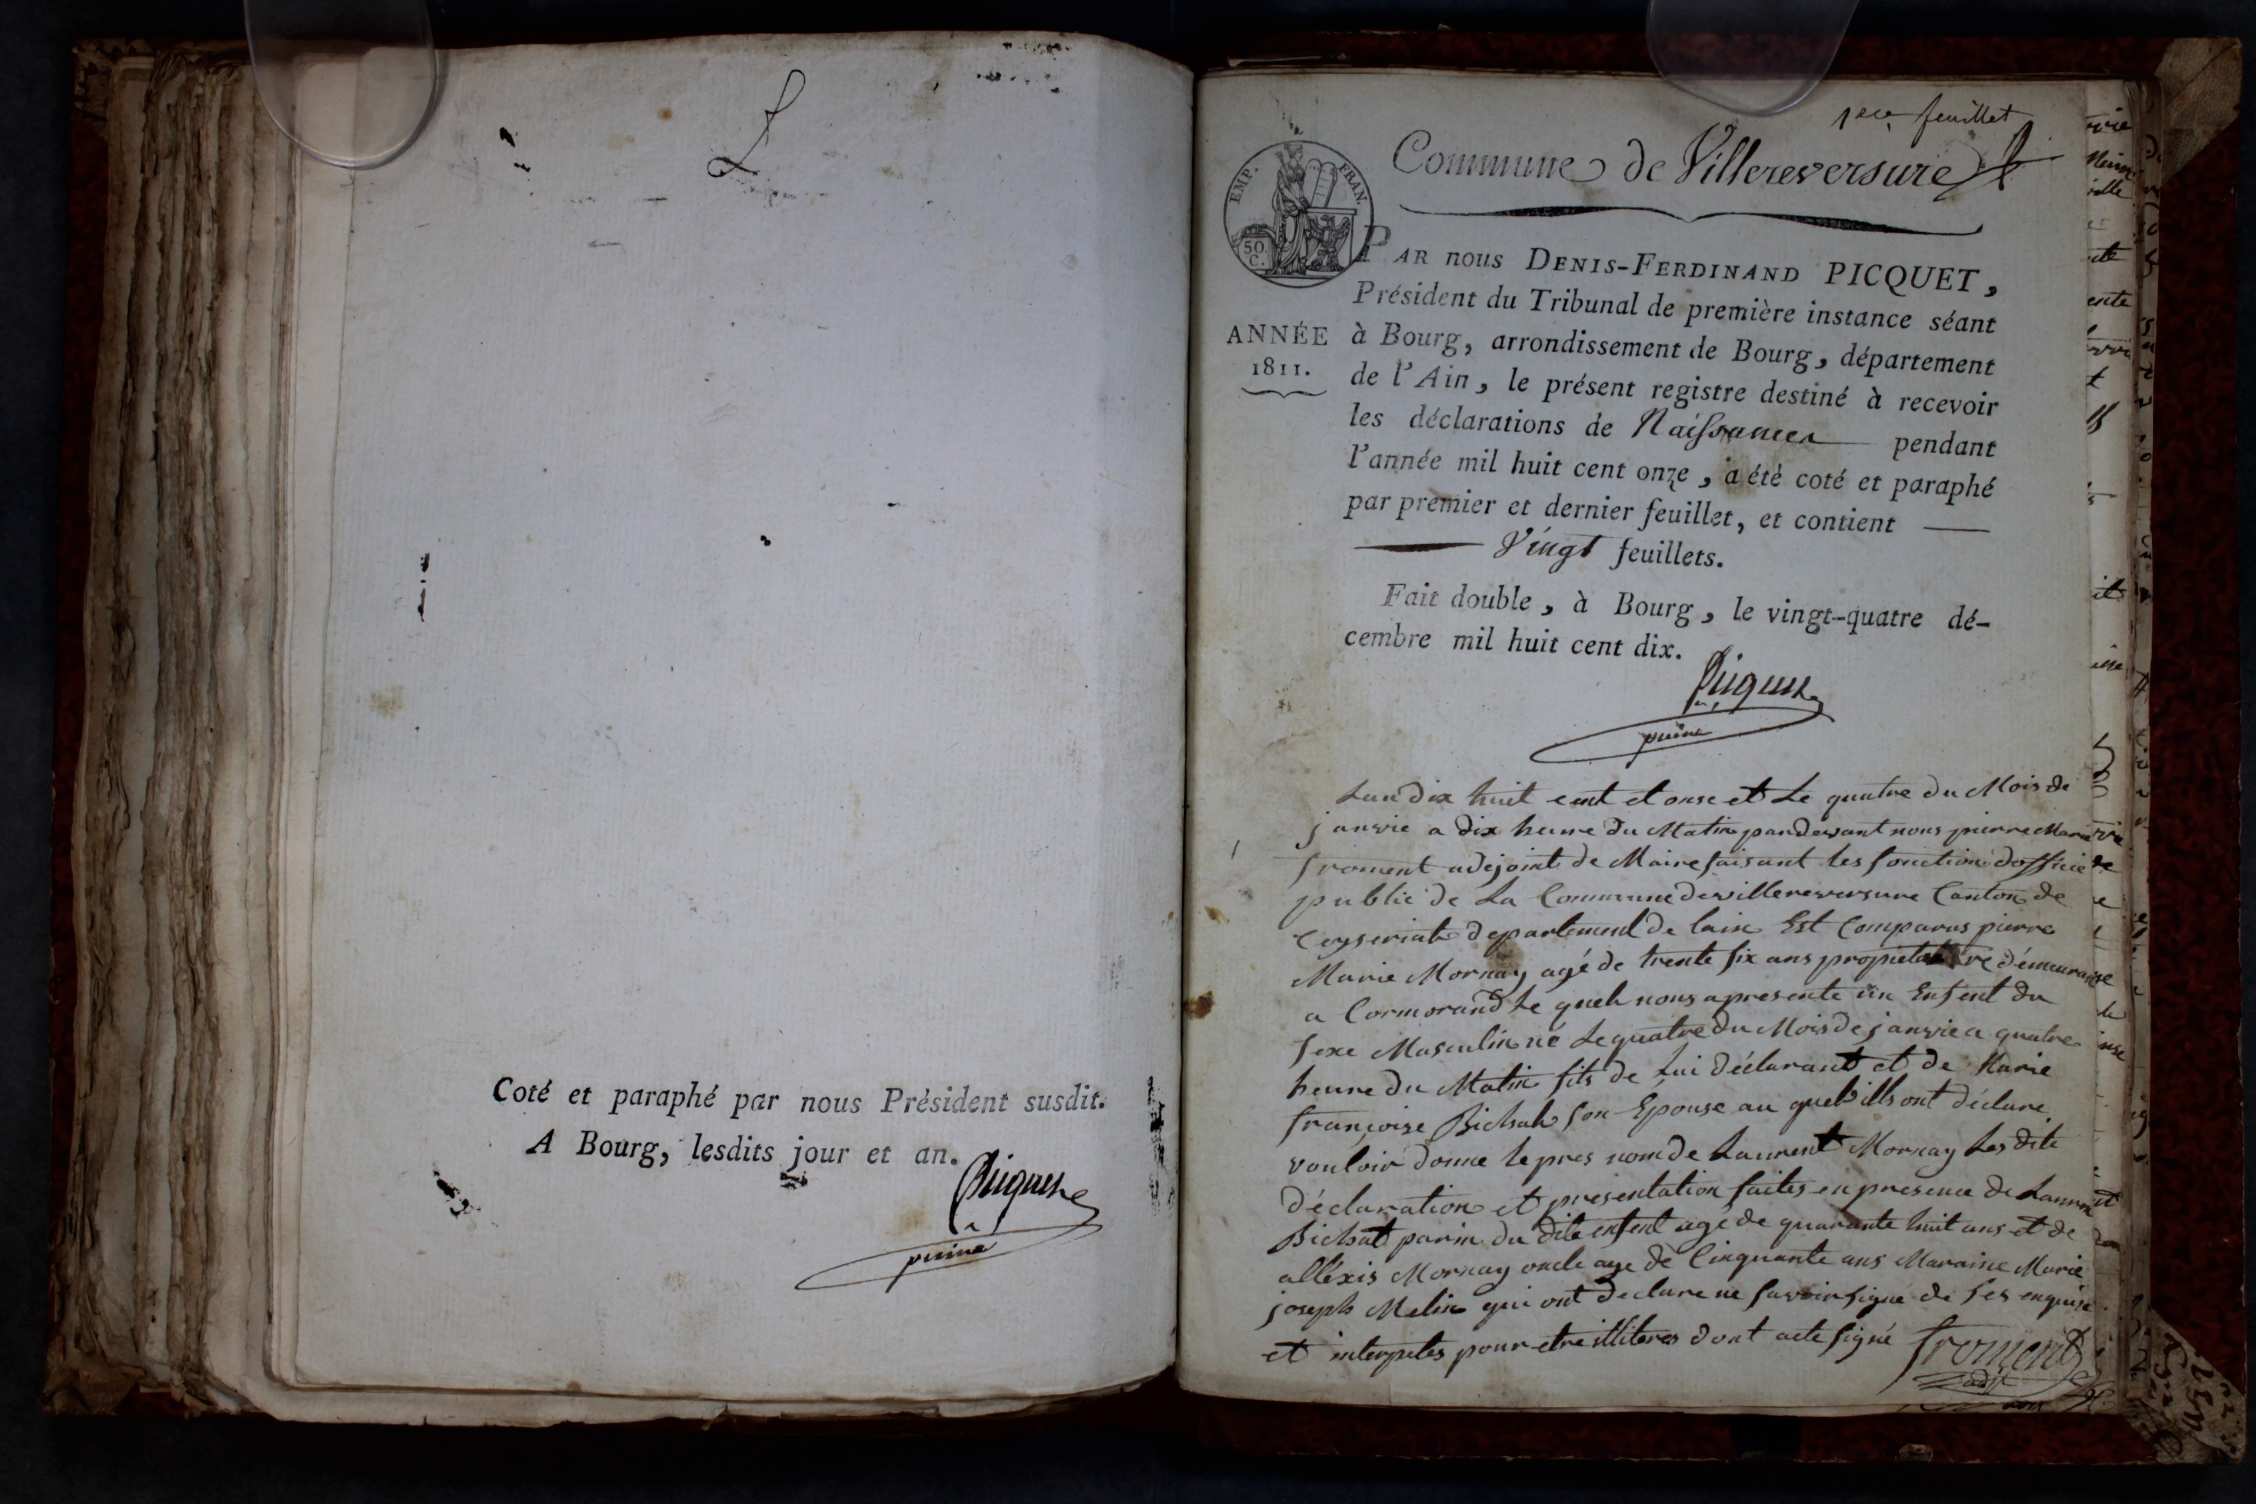 Coté et paraphé par nous Président susdit.
A Bourg, lesdits jour et an.
Picquet
1er feuillet
Commune de Villereversure
EMP. FRAN.
50.
C.
PAR nous DENIS-FERDINAND PICQUET,
Président du Tribunal de première instance séant
ANNÉE
1811.
à Bourg, arrondissement de Bourg, département
de l'Ain, le présent registre destiné à recevoir
les déclarations de Naissances pendant
l'année mil huit cent onze, a été coté et paraphé
par premier et dernier feuillet, et contient
Vingt feuillets.
Fait double, à Bourg, le vingt-quatre dé-
cembre mil huit cent dix.
Picquet
Lan dix huit cent et onse et Le quatre du Mois de
janvie a dix heure du Matin pardevant nous pierre Marie
froment adejoint de Maire faisant les fonction doffície
public de La Commune de villereversure Canton de
Ceyseriat departement de lain Est Comparus pierre
Marie Mornay agé de trente six ans propietaire démeurant
a Cormorand Le quel nous apresente un Enfent du
sexe Masculin né Le quatre du Mois de janvie a quatre
heure du Matin fils de Lui déclarant et de Marie
françoise Bichat son Epouse au quel ills ont déclare
vouloir donne le pres nom de Laurent Mornay Les dite
déclaration et presentation faites en presence de Laurent
Bichat parin du dite enfent agé de quarante huit ans et de
alléxis Mornay oncle age de Cinquante ans Maraine Marie
joseph Melin qui ont declare ne savoir signe de Ses enquise
et interpeles pour etre illiteres dont acte signé froment
adjt